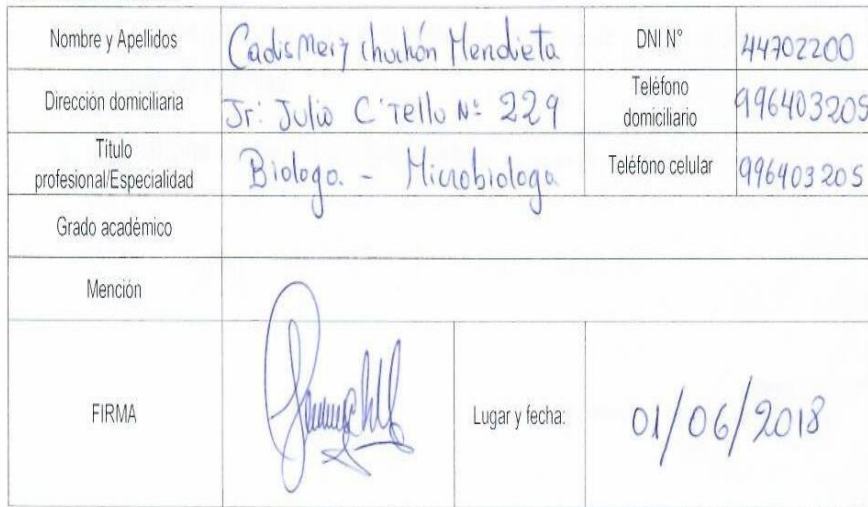 Nombre y Apellidos Cadis Meiz Chuchón Mendieta DNI N° 44702200
Dirección domiciliaria Jr: Julio C. Tello Nº 229 Teléfono domiciliario 996403205
Título profesional/Especialidad Biologo. - Microbiologa Teléfono celular 996403205
Grado académico
Mención
FIRMA Lugar y fecha: 01/06/2018